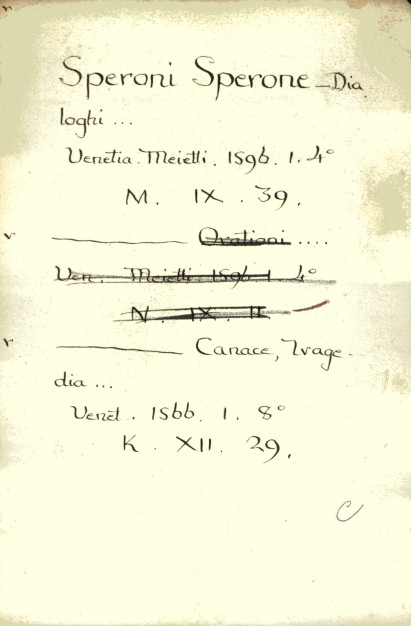 Speroni Sperone – Dia
loghi ...
Venetia. Meietti. 1596. 1. 4°
M. IX. 39.
Orationi ....
Ven. Meietti 1596 1 4°
N. IX. II
Canace, Trage-
dia ...
Venet. 1566. 1. 8°
K. XII. 29.
C